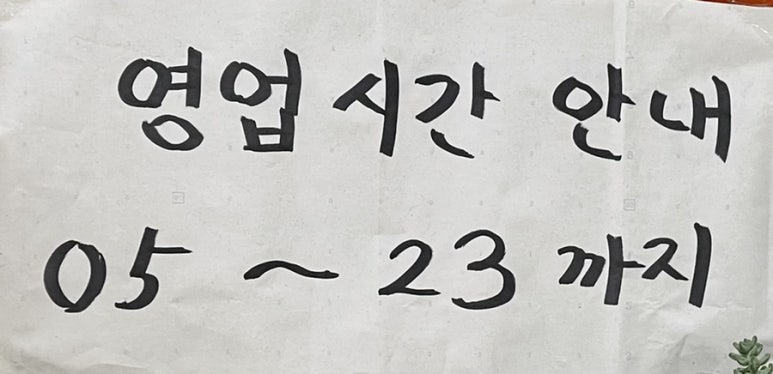 영업시간 안내
05 ~ 23 까지